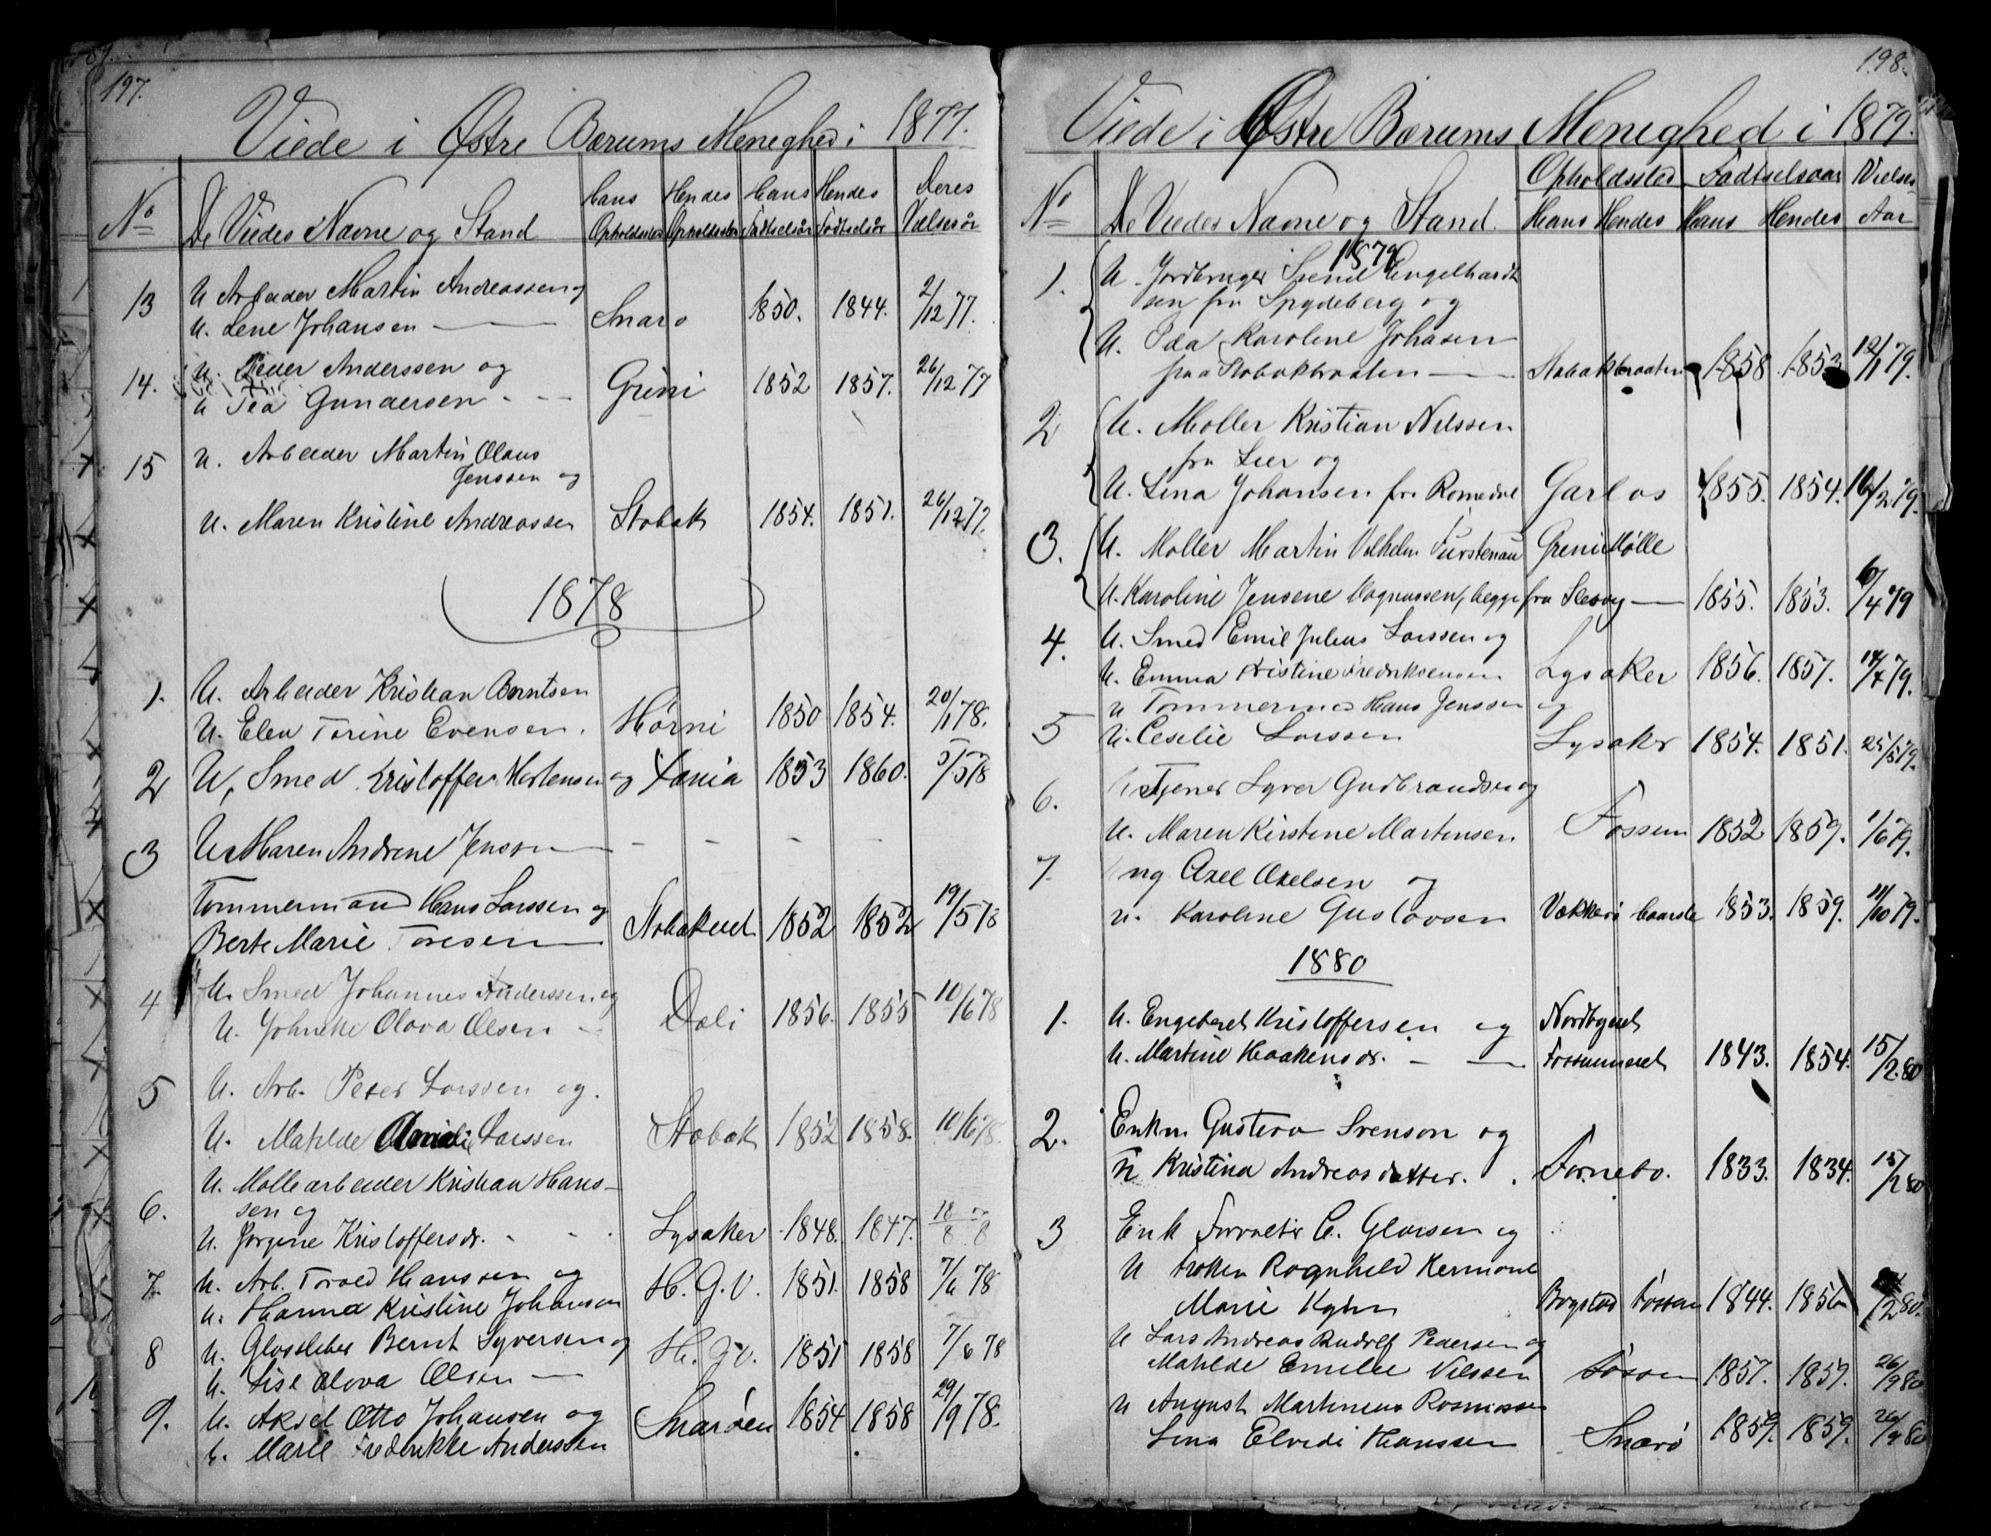 197.
Viede i Østre Bærums Menighed i 1877.
No
De Viedes Navne og Stand
Hans Opholdssted
Hendes Opholdssted
Hans Fødselsår
Hendes Fødselsår
Deres Vielsesår
13 U Arbeider Martin Andreassen og
U. Lene Johansen — Snarø 1850. 1844. 2/12 77.
14. U. Peder Anderssen og
U Pea Gundersen - - Grini 1852 1857. 26/12 77
15 U. Arbeider Martin Olaus
Jenssen og
U. Maren Kristine Andreassen Stabæk 1854. 1851. 26/12 77.
1878
1. U. Arbeider Kristian Berntsen
U. Elen Torine Evensen. Hørni 1850 1854. 20/1 78.
2 U, Smed Kristoffer Mortensen og Fania 1853 1860. 5/5 78
3 U. Maren Andrine Jenson — - - -
Tømmermand Hans Larssen og
Berte Marie Toresen — Stabækeiet 1852 1852 19/5 78
4 U. Smed Johannes Anderssen og
U. Johneke Olava Olsen - Dali 1856. 1855 10/6 78
5 U. Arb. Peter Larssen og.
U. Matilde Amalie Larssen Stabæk 1852 1858. 10/6 78.
6. U. Møllearbeider Kristian Hans-
sen og
U. Jørgine Kristoffersdr. - - Lysaker 1848. 1847. 18/8 78
7. U. Arb. Torvald Hanssen og
U. Hanna Kristine Johansen H. G. V. 1851. 1858 7/6 78
8 U. Glassleber Bernt Syversen og
U. Lise Olava Olsen — H. G. V. 1851 1858 7/6 78
9. U. Aksel Otto Johansen og
U. Marie Frederikke Anderssen Snarøen 1854 1858 29/9 78.
198.
Viede i Østre Bærums Menighed i 1879.
No
De Viedes Navne og Stand.
Opholdssted Fødselsaar Vielses-
Hans Hendes Hans Hendes Aar
1879
1. U. Jordbruger Svend Engelhardt
sen fra Spydeberg og
U. Ida Karoline Johasen
fra Stabækbraaten — Stabækbraaten 1858 1853 12/1 79.
2 U. Møller Kristian Nilssen
fra Lier og
U. Lina Johansen fra Romedal Garlos 1855. 1854. 16/2 79.
3. U. Møller Martin Vilhelm Furstenau Greni Mølle
U. Karoline Jensene Magnussen, begge fra Slesvig — 1855. 1853. 6/4 79
4. U. Smed Emil Julius Larssen og
U. Emma Kristine Fredriksensen Lysaker 1856. 1857. 14/4 79.
5 U Tømmermand Hans Jenssen og
U. Ceselie Larssen Lysaker 1854. 1851. 25/5 79.
6. U. Tjener Syver Gudbrandsen og
U. Maren Kirstine Martensen Fossum 1852 1859. 1/6 79.
7. Ung Axel Axelsen og
U. Karoline Gustavsen Vækkerø 1853. 1859. 11/10 79.
1880
1. U. Engebret Kristoffersen og Nordbyeiet
U. Martine Haakensdr. - — Fossumeiet 1843. 1854. 15/2 80
2. Enkm Gustava Svenson og
U Kristina Andreasdatter. . Fornebo. 1833. 1834. 15/2 80
3 Enk Forvalter C. Glarsen og
U Frøken Ragnhild Hermone
Marie Kyhn Bogstad Fossum 1844. 1856 /2 80.
U Lars Andreas Rudolf Pedersen og
Matilde Emelie Nilssen Fossum 1857. 1857. 26/9 80
U August Martinius Rasmussen
Lina Elvedi Hanssen Snarø 1859. 1859. 26/9 80